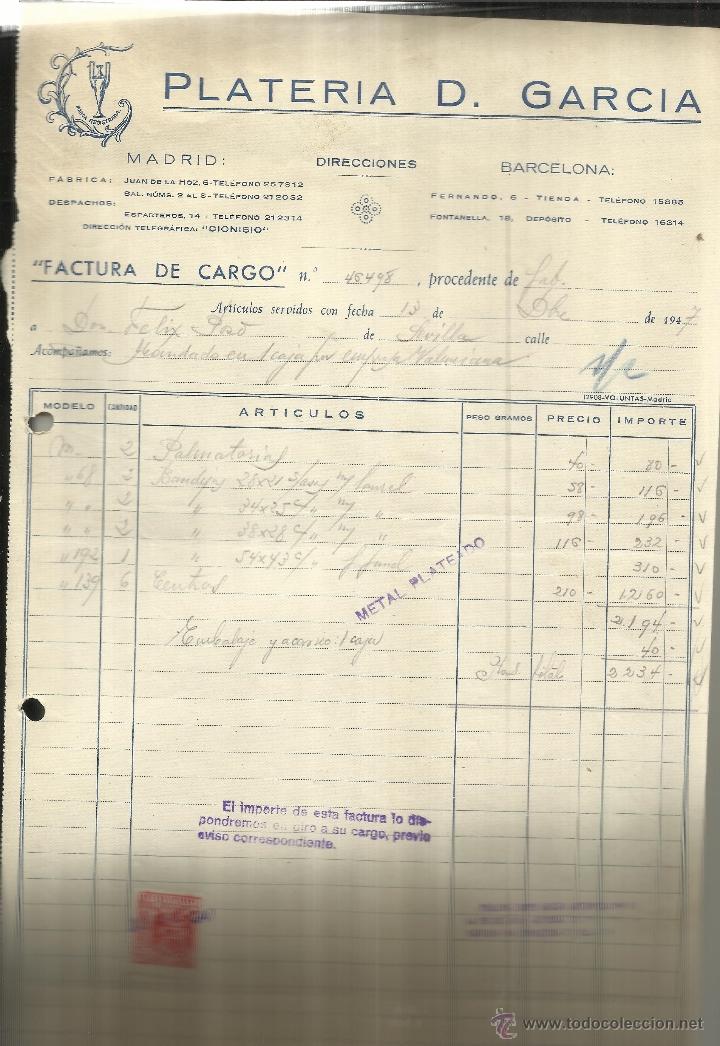 MARCA REGISTRADA
PLATERIA D. GARCIA
MADRID: DIRECCIONES BARCELONA:
FABRICA: JUAN DE LA HOZ, 6-TELÉFONO 257812
SAL. NÚMS. 2 AL 8-TELÉFONO 212052
DESPACHOS: ESPARTEROS, 14 - TELÉFONO 212314
DIRECCIÓN TELEGRÁFICA: "CIONISIO"
FERNANDO, 6 - TIENDA - TELÉFONO 15885
FONTANELLA, 18, DEPÓSITO - TELÉFONO 16314
"FACTURA DE CARGO" n.º 45498, procedente de Fab.
Artículos servidos con fecha 13 de Dbe de 1947
a Don Felix Pozo de Sevilla calle
Acompañamos: Mandado en 1 caja por empresa Valenciana
12908-VOLUNTAS-Madrid
MODELO CANTIDAD ARTICULOS PESO GRAMOS PRECIO IMPORTE
m. 2 Palmatorias 40 - 80 -
" 68 2 Bandejas 28x21 laurel 58 - 116 -
" " 2 " 34x25 c/ " " 98 - 196 -
" " 2 " 38x28 c/ " " 116 - 232 -
" 192 1 " 54x43 c/ " 310 -
" 139 6 Centros 210 - 1260 -
METAL PLATEADO
2194 -
Embalaje y acarreo: 1 caja 40 -
Ptas totales 2234 -
El importe de esta factura lo dis-
pondremos en giro a su cargo, previo
aviso correspondiente.
www.todocoleccion.net